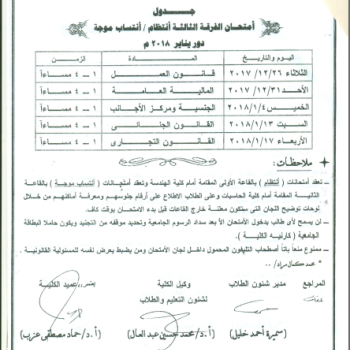 جـــدول
أمتحـان الفرقـة الثالثـة أنتظـام / أنتسـاب موجـة
دور يناير ٢٠١٨ م
اليوم والتاريخ المـادة الزمن
الثلاثاء ٢٠١٧/١٢/٢٦ قانـون العمـل ١ - ٤ مساءاً
الأحد ٢٠١٧/١٢/٣١ الماليـة العامـة ١ - ٤ مساءاً
الخميس ٢٠١٨/١/٤ الجنسية ومركز الأجانب ١ - ٤ مساءاً
السبت ٢٠١٨/١/١٣ القانون الجنائى ١ - ٤ مساءاً
الأربعاء ٢٠١٨/١/١٧ القانون التجارى ١ - ٤ مساءاً
ملاحظات :
- تعقد أمتحانات ( أنتظام ) بالقاعة الأولى المقامة أمام كلية الهندسة وتعقد أمتحانات ( أنتساب موجة ) بالقاعة
الثانية المقامة أمام كلية الحاسبات وعلى الطلاب الاطلاع على أرقام جلوسهم ومعرفة أماكنهم من خلال
لوحات توضيح اللجان التى ستكون معلنة خارج القاعات قبل بدء الامتحان بوقت كاف.
- لن يسمح لأى طالب بدخول الأمتحان الا بعد سداد الرسوم الجامعية وتحديد موقفه من التجنيد ويكون حاملا البطاقة
الجامعية ( كارنيه الكلية ).
- ممنوع منعاً باتاً أصطحاب التليفون المحمول داخل لجان الأمتحان ومن يضبط يعرض نفسه للمسئولية القانونية.
المراجع مدير شئون الطلاب وكيل الكلية عميد الكلية
لشئون التعليم والطلاب
( سميرة أحمد خليل ) ( أ.د/ محمد حسين عبدالعال ) ( أ.د/ حماد مصطفى عزب )